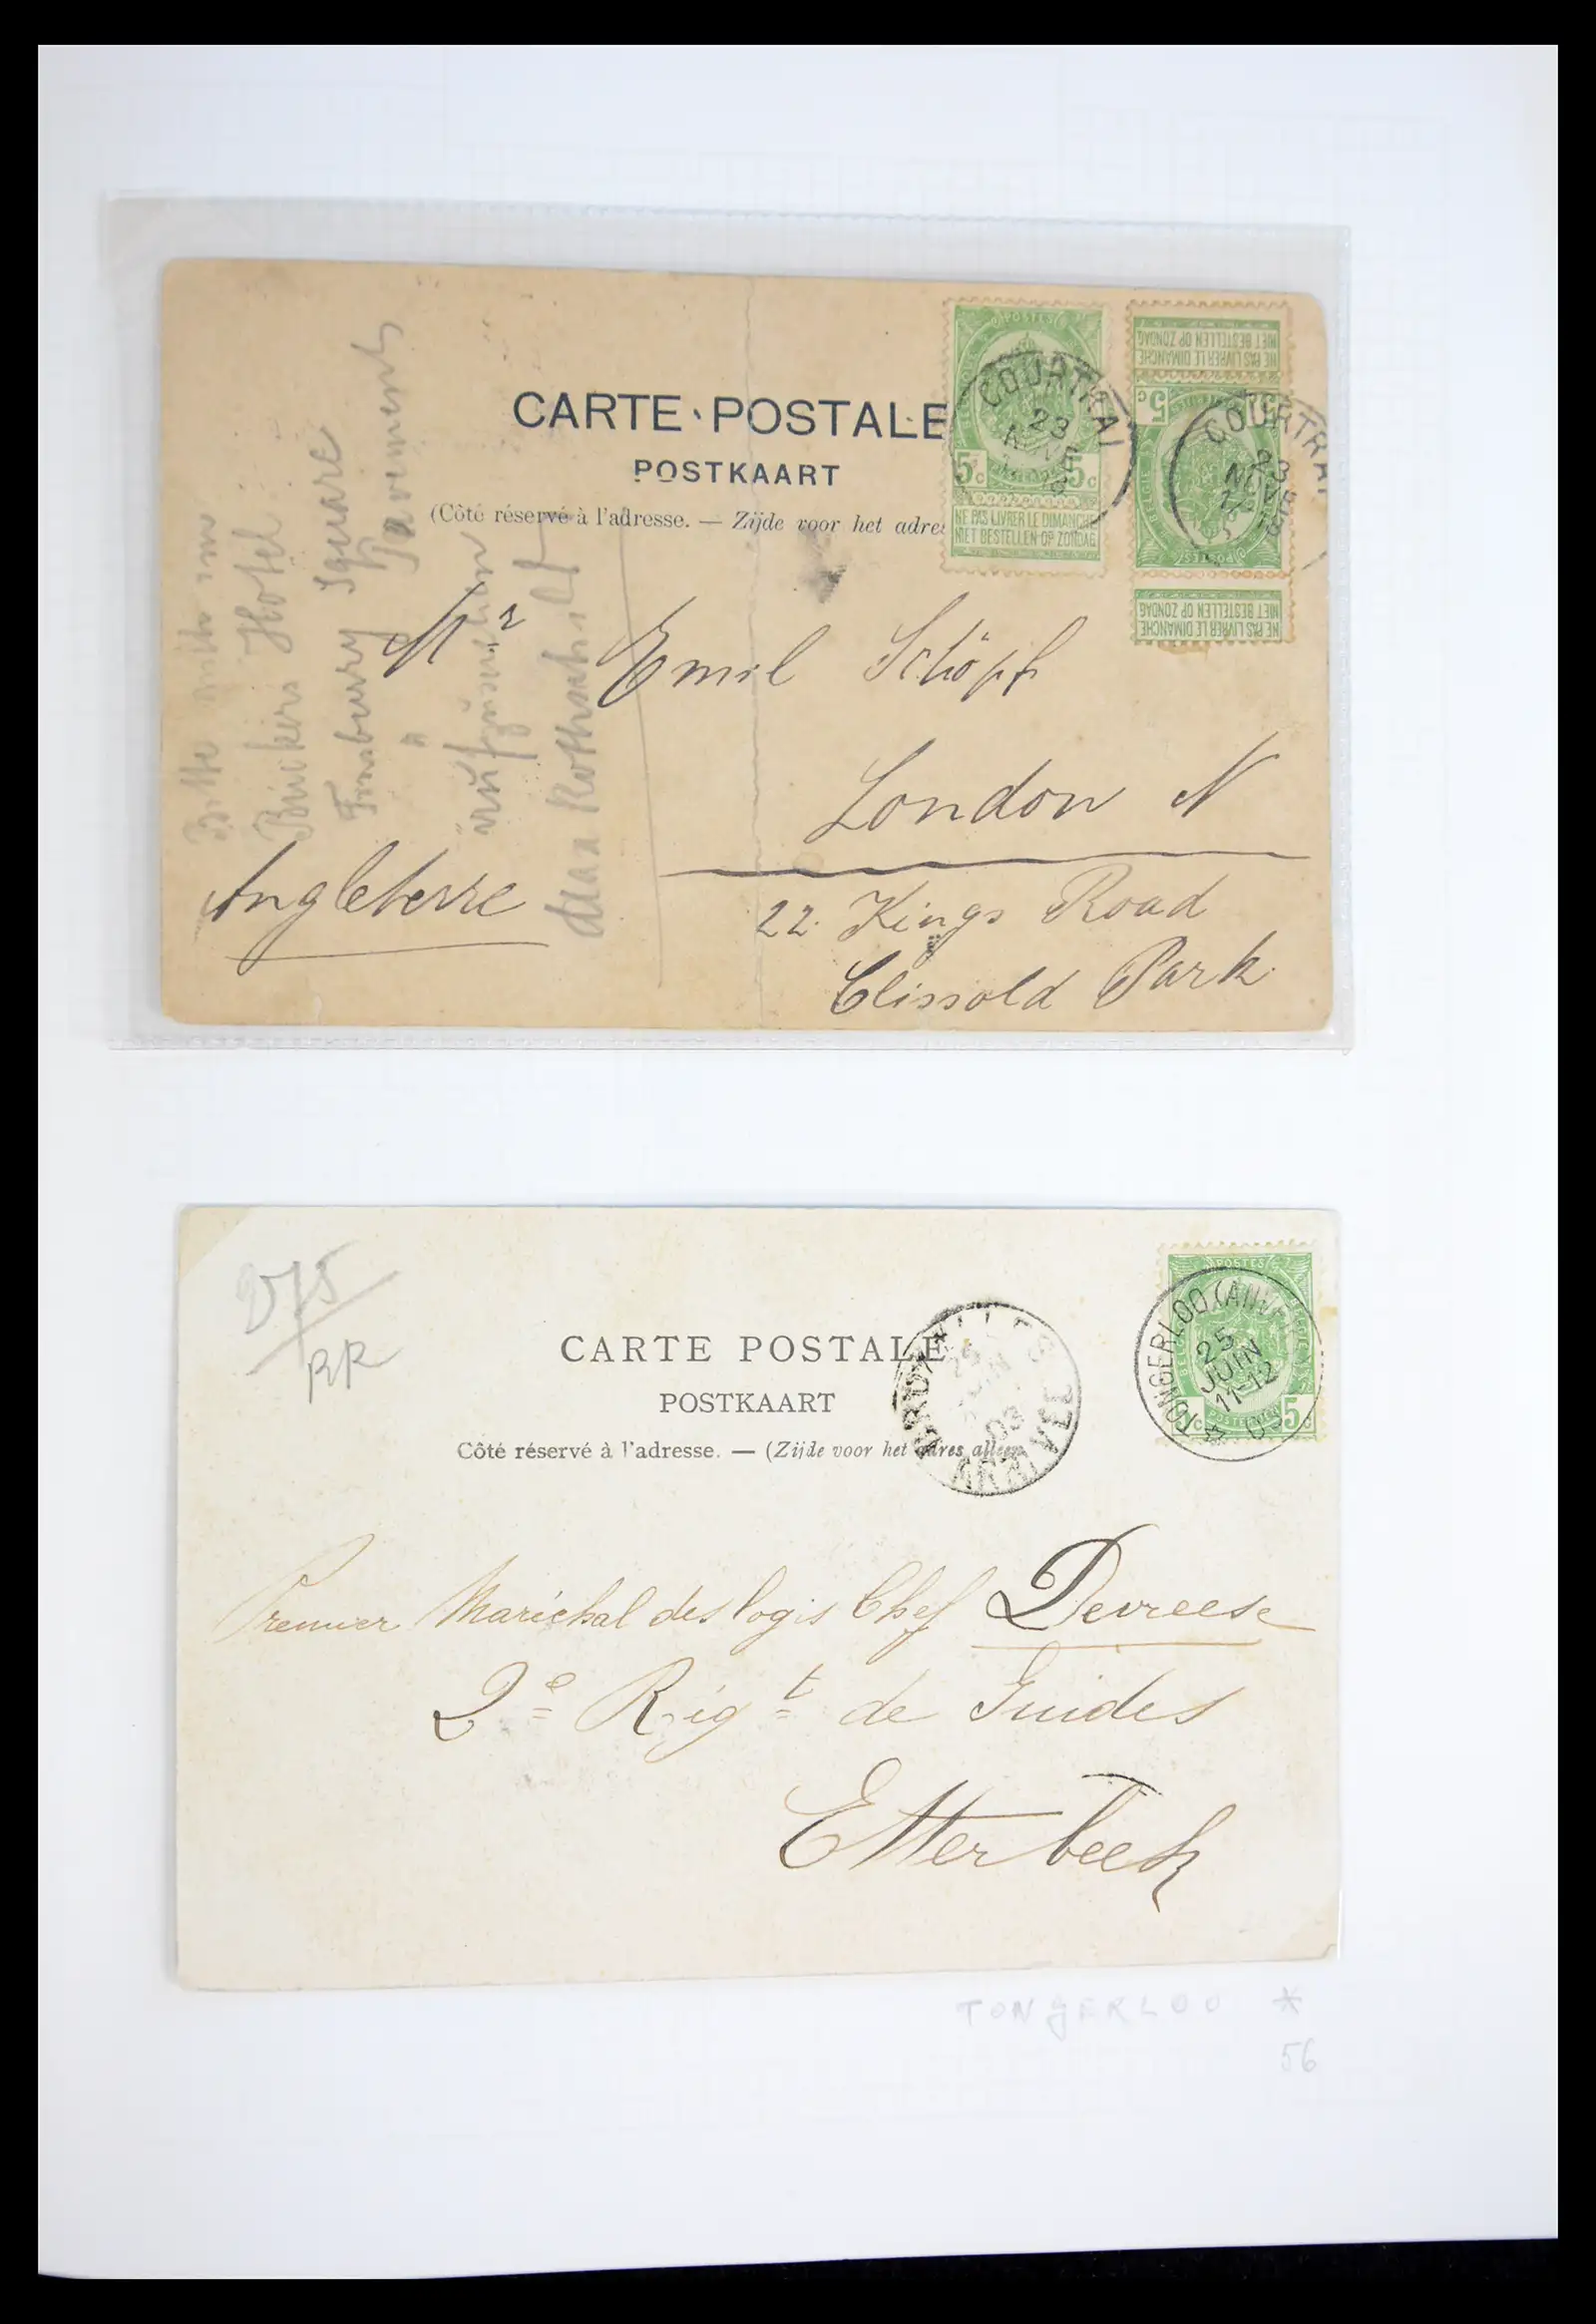 CARTE POSTALE
POSTKAART
(Côté réservé à l'adresse. — Zijde voor het adres
POSTES
5c 5c
NE PAS LIVRER LE DIMANCHE
NIET BESTELLEN OP ZONDAG
COURTRAI
23
NOVE
NE PAS LIVRER LE DIMANCHE
NIET BESTELLEN OP ZONDAG
5c
BELGIE
POSTES
NE PAS LIVRER LE DIMANCHE
NIET BESTELLEN OP ZONDAG
COURTRAI
23
NOVE
Mr Emil Schöpf
London N
22. Kings Road
Clissold Park.
Angleterre
Bitte
Hotel
Finsbury Square
Pavements
aufzusuchen
Max Rothschild
275
RR
CARTE POSTALE
POSTKAART
Côté réservé à l'adresse. — (Zijde voor het adres alleen
BRUXELLES
03
POSTES
5c
TONGERLOO (ANVERS)
25
JUIN
11-12
Premier Maréchal des logis Chef Devreese
2e Rigt de Guides
Etterbeek
TONGERLOO *
56